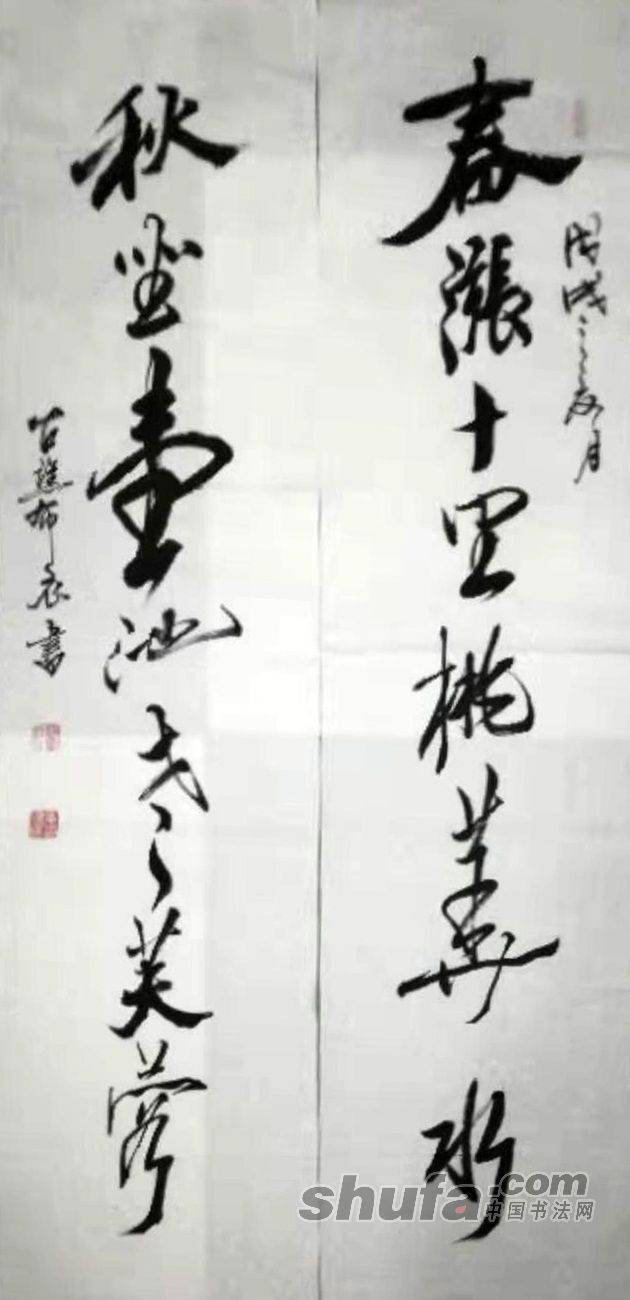 春漲十里桃華水
戊戌之夏月
秋坐壹池老芙蓉
古譙布衣書
shufa.com
中国书法网